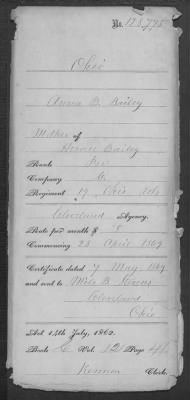 No. 125,775
Ohio
Anna B. Bailey
Mother of
Horace Bailey
Rank Pri
Company G
Regiment 19 Ohio Vols
Cleveland Agency.
Rate per month $ 8
Commencing 23 April 1869
Certificate dated 7 May 1869
and sent to Milo B.
Cleveland
Ohio
Act 14th July, 1862.
Book C Vol. 12 Page
Clerk.